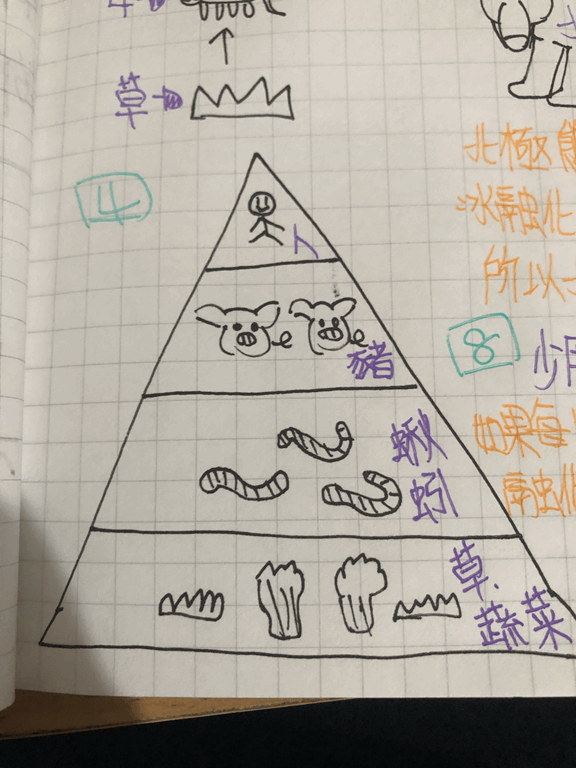 牛
草
4
人
豬
蚯
蚓
草、
蔬菜
北極熊
冰融化
所以
8
少用
如果每
融化